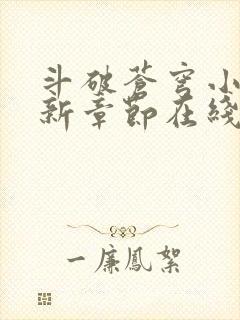 斗破苍穹小
新章節在綫
一廉鳳絮